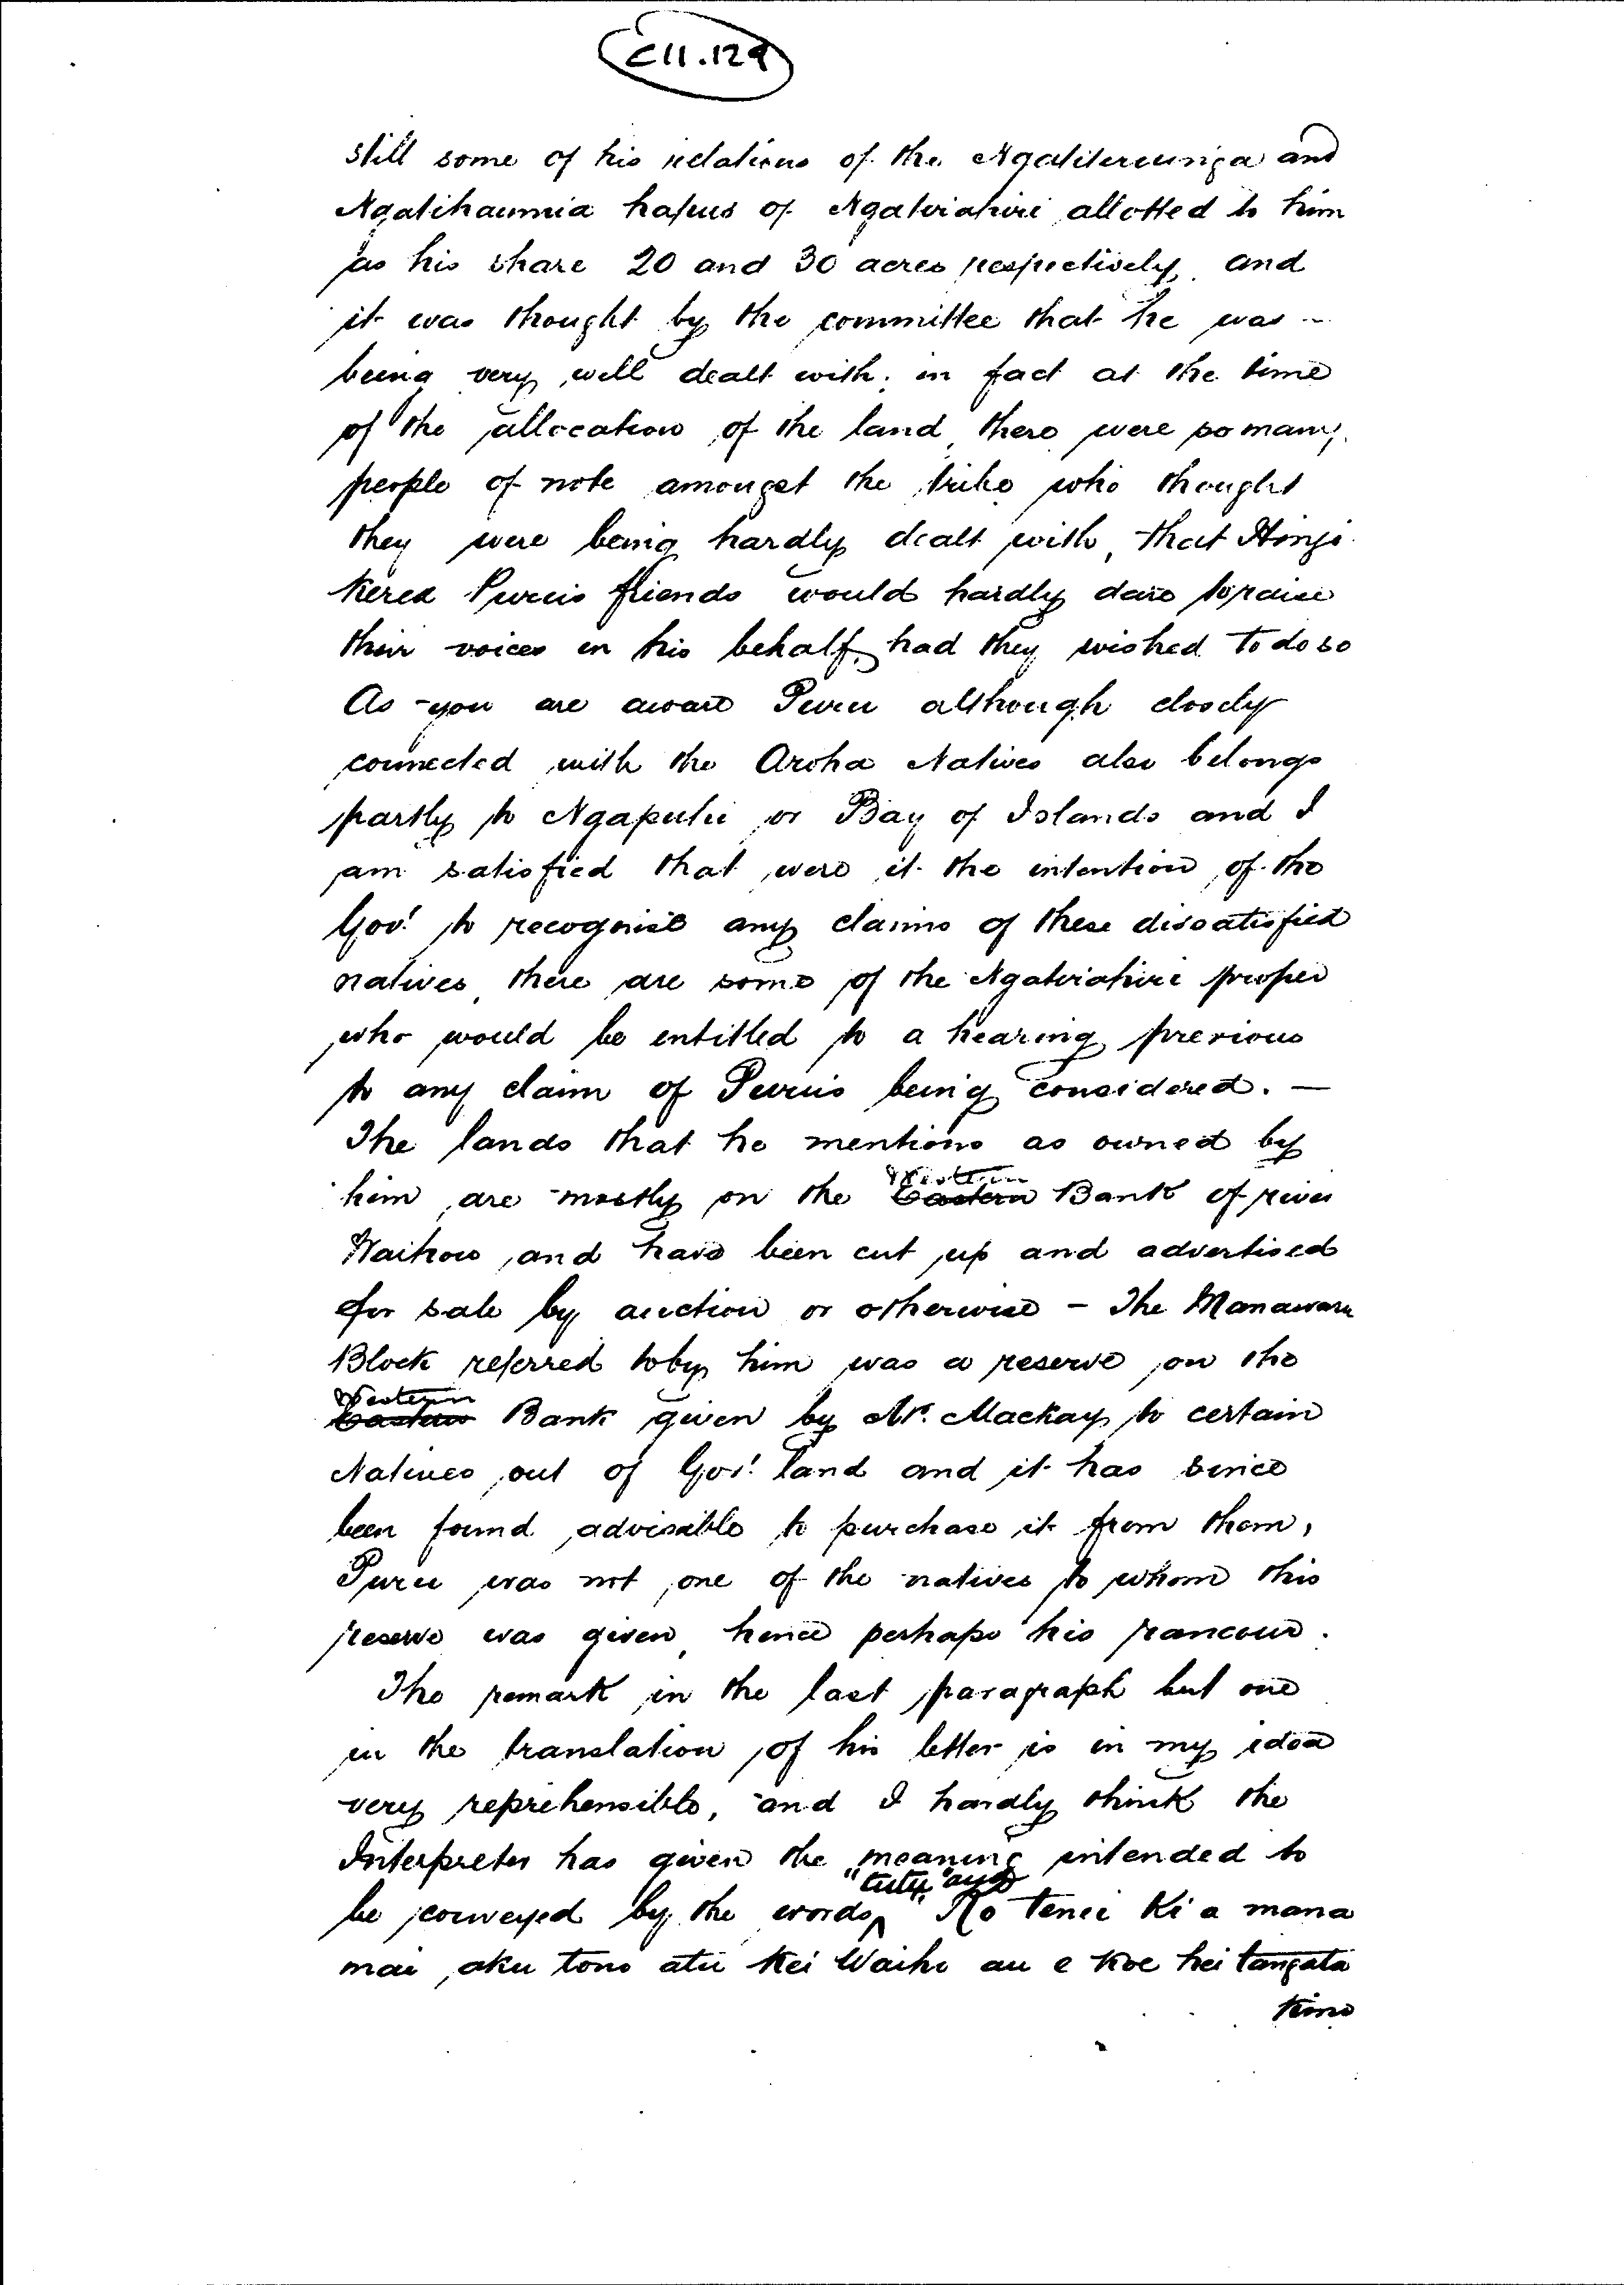 C11.129
still some of his relations of the Ngatitereunga and
Ngatihaumia hapus of Ngatirahiri allotted to him
as his share 20 and 30 acres respectively and
it was thought by the committee that he was
being very well dealt with; in fact at the time
of the allocation of the land, there were so many
people of note amongst the tribe who thought
they were being hardly dealt with, that
friends would hardly dare to raise
their voices in his behalf, had they wished to do so
As you are aware Puru although closely
connected with the Aroha Natives also belongs
partly to Ngapuhi or Bay of Islands and I
am satisfied that were it the intention of the
Govt to recognise any claims of these dissatisfied
natives, there are some of the Ngatirahiri proper
who would be entitled to a hearing previous
to any claim of Puru's being considered. —
The lands that he mentions as owned by
him are mostly on the Western Eastern Bank of river
Waihou and have been cut up and advertised
for sale by auction or otherwise — The Manawaru
Block referred to by him was a reserve on the
Western Eastern Bank given by Mr. Mackay to certain
Natives out of Govt land and it has since
been found advisable to purchase it from them,
Puru was not one of the natives to whom this
reserve was given, hence perhaps his rancour.
The remark in the last paragraph but one
in the translation of his letter is in my idea
very reprehensible, and I hardly think the
Interpreter has given the meaning intended to
be conveyed by the words "tutu" and "No tenei Ki a mana
mai aku tono atu kei Waiho au e koe hei tangata
kino